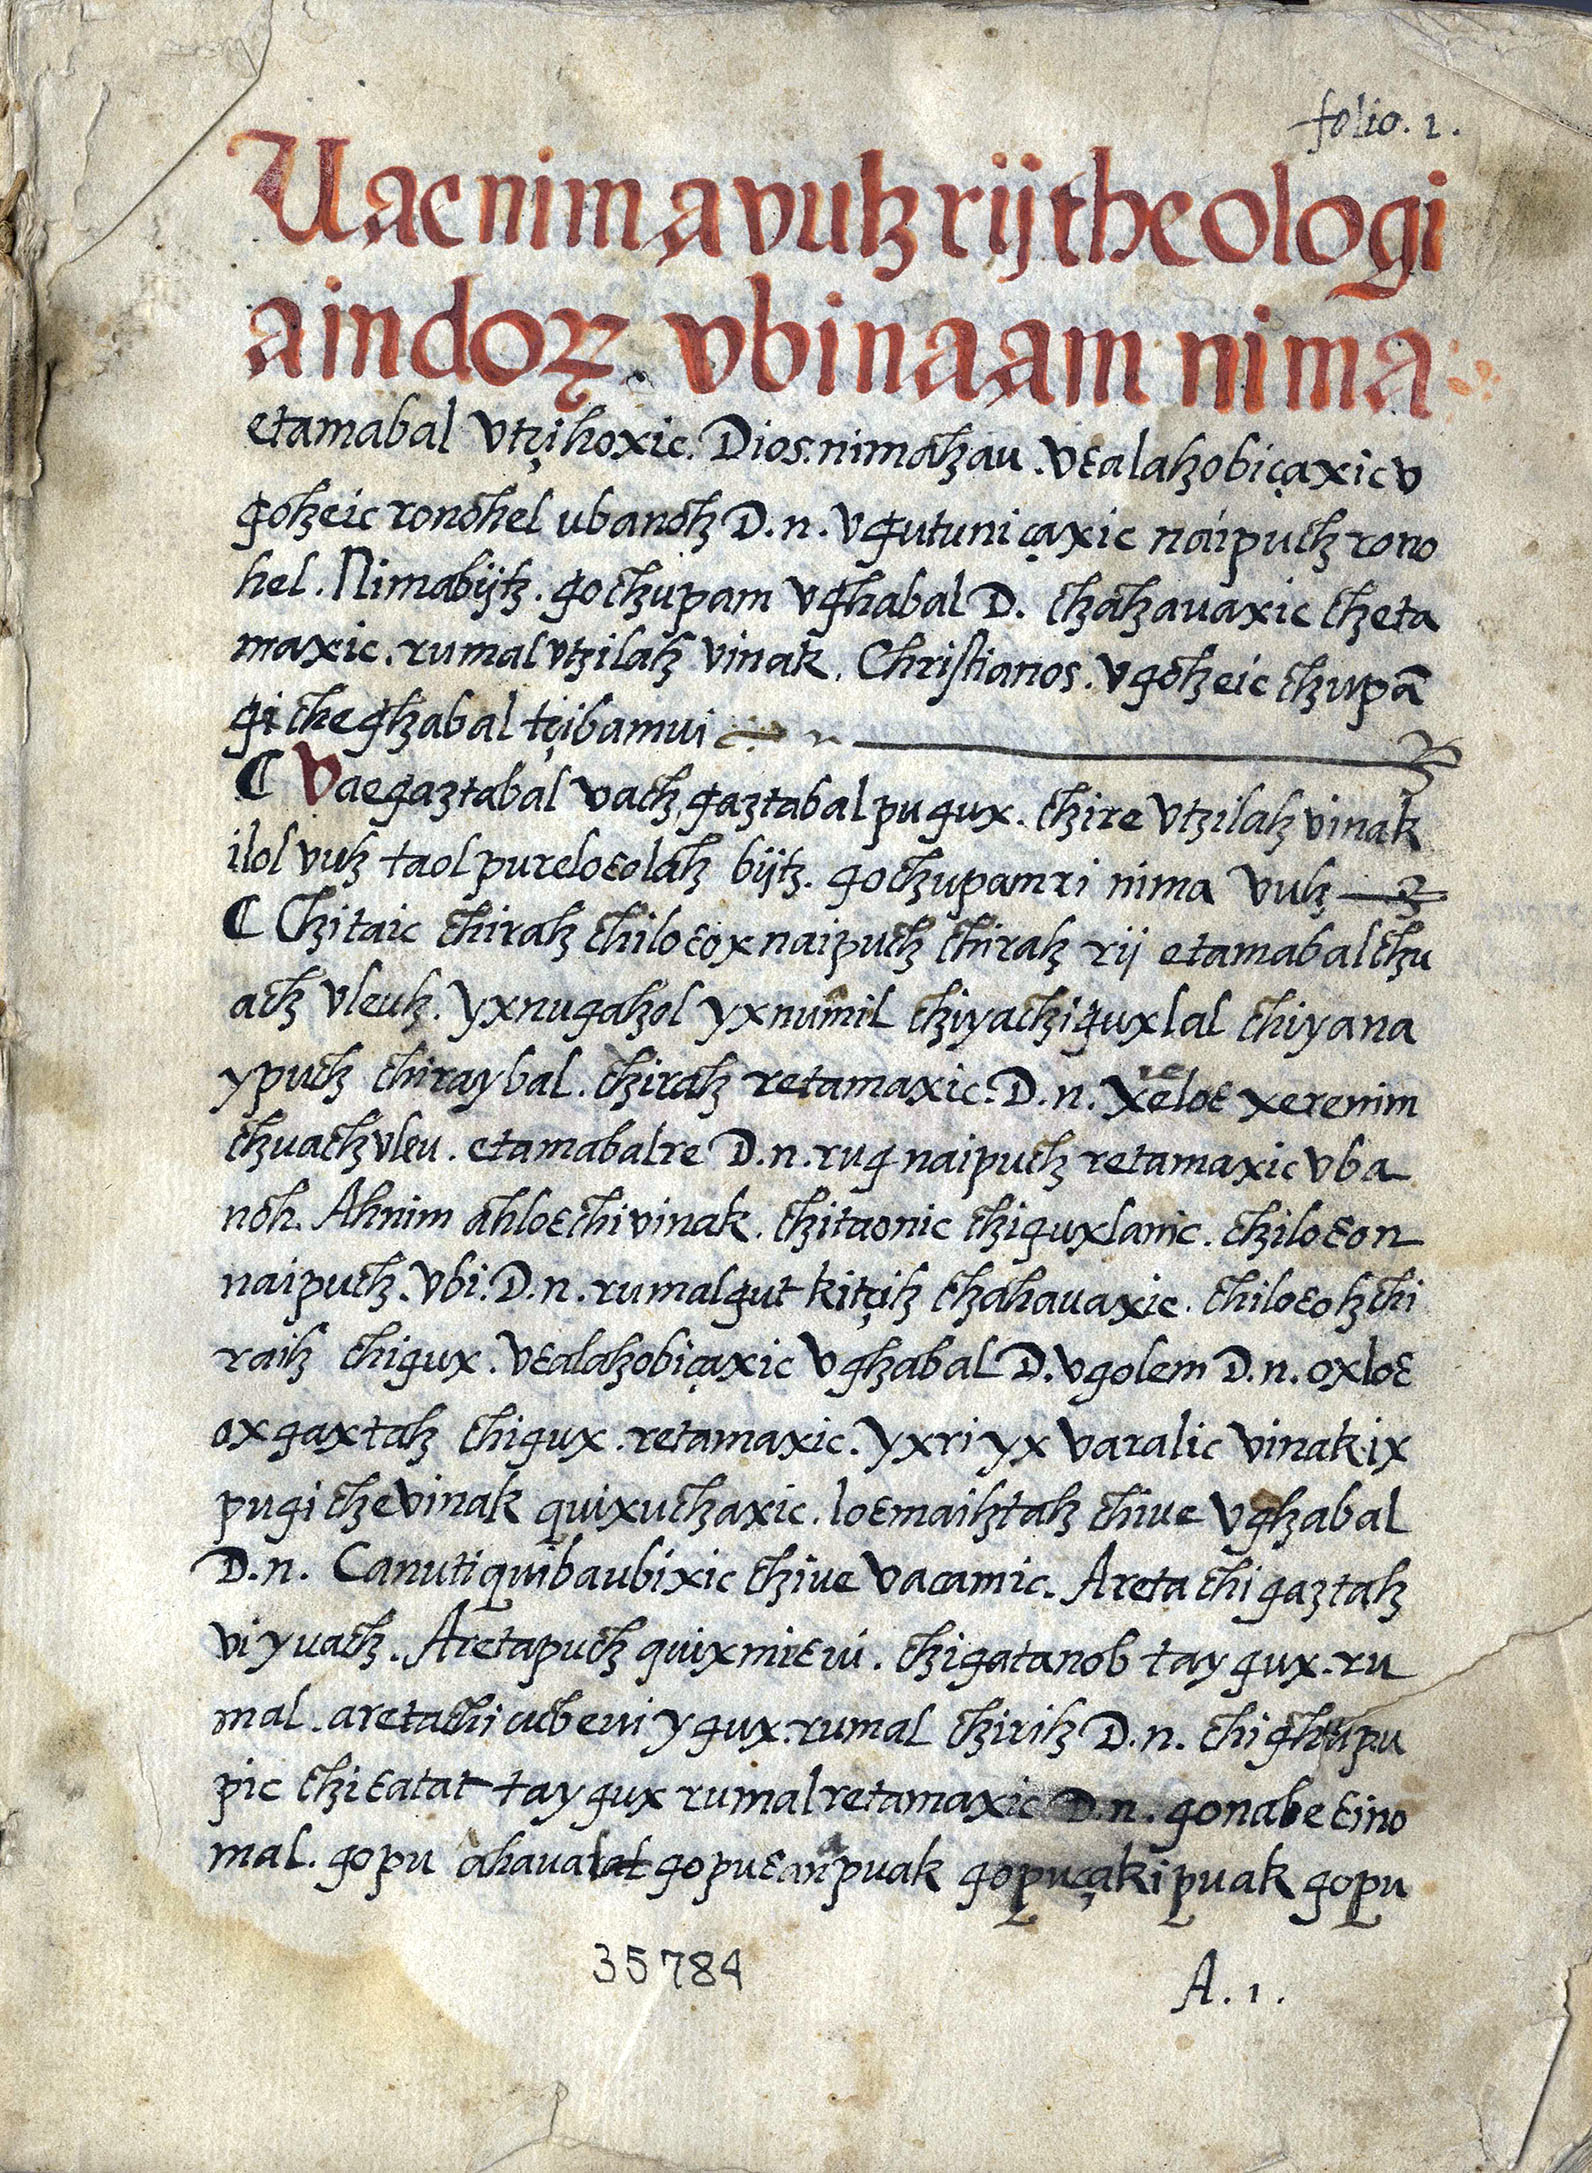 folio. 1.
Uae nima vuh rij theologi
a indoꝝ vbinaam nima
etamabal vtçihoxic. Dios. nimahau. vɛalahobiçaxic v
ꜭoheic ronohel ubanoh D. n. vꜭutuniçaxic naipuch rono
hel. Nimabijh. ꜭochupam vꜭhabal D. chahauaxic cheta
maxic. rumal vtzilah vinak. Christianos. vꜭoheic chupā
ꜭi che ꜭhabal tçibamui
C Vae ꜭaztabal vach, ꜭaztabal pu ꜭux. chire vtzilah vinak
ilol vuh taol pu reloɛolah bijh. ꜭochupam ri nima vuh
C Chitaic chirah chiloɛox naipuch chirah rij etamabal chu
ach vleuh. yxnuꜭahol yxnumil chiyachiꜭuxlal chiyana
ypuch chiraybal. chirah retamaxic. D. n. xeloɛ xerenim
chuach vleu. etamabalre D. n. ruꜭ naipuch retamaxic vba
noh. Ahnim ahloɛ chi vinak. chitaonic chiꜭuxlanic. chiloɛon
naipuch. vbi. D. n. rumal ꜭut kitçih chahauaxic. chiloɛoh chi
raih chiꜭux. vɛalahobiçaxic vꜭhabal D. vꜭolem D. n. oxloɛ
oxꜭaxtah chiꜭux. retamaxic. yxri yx varalic vinak ix
pu ꜭi che vinak quixuchaxic. loɛmaihtah chiue vꜭhabal
D. n. Canutiquibaubixic chiue vacamic. Areta chi ꜭaztah
vi yuach. Aretapuch quixnicɛ vi. chiꜭatanob tay ꜭux. ru
mal. aretachi cubeui y ꜭux. rumal chirih D. n. chi ꜭhupu
pic chiɛatat tay ꜭux rumal retamaxic D. n. ꜭonabe ɛino
mal. ꜭopu ahaualat ꜭopuɛanapuak ꜭopuçakipuak ꜭopu
35784
A. 1.